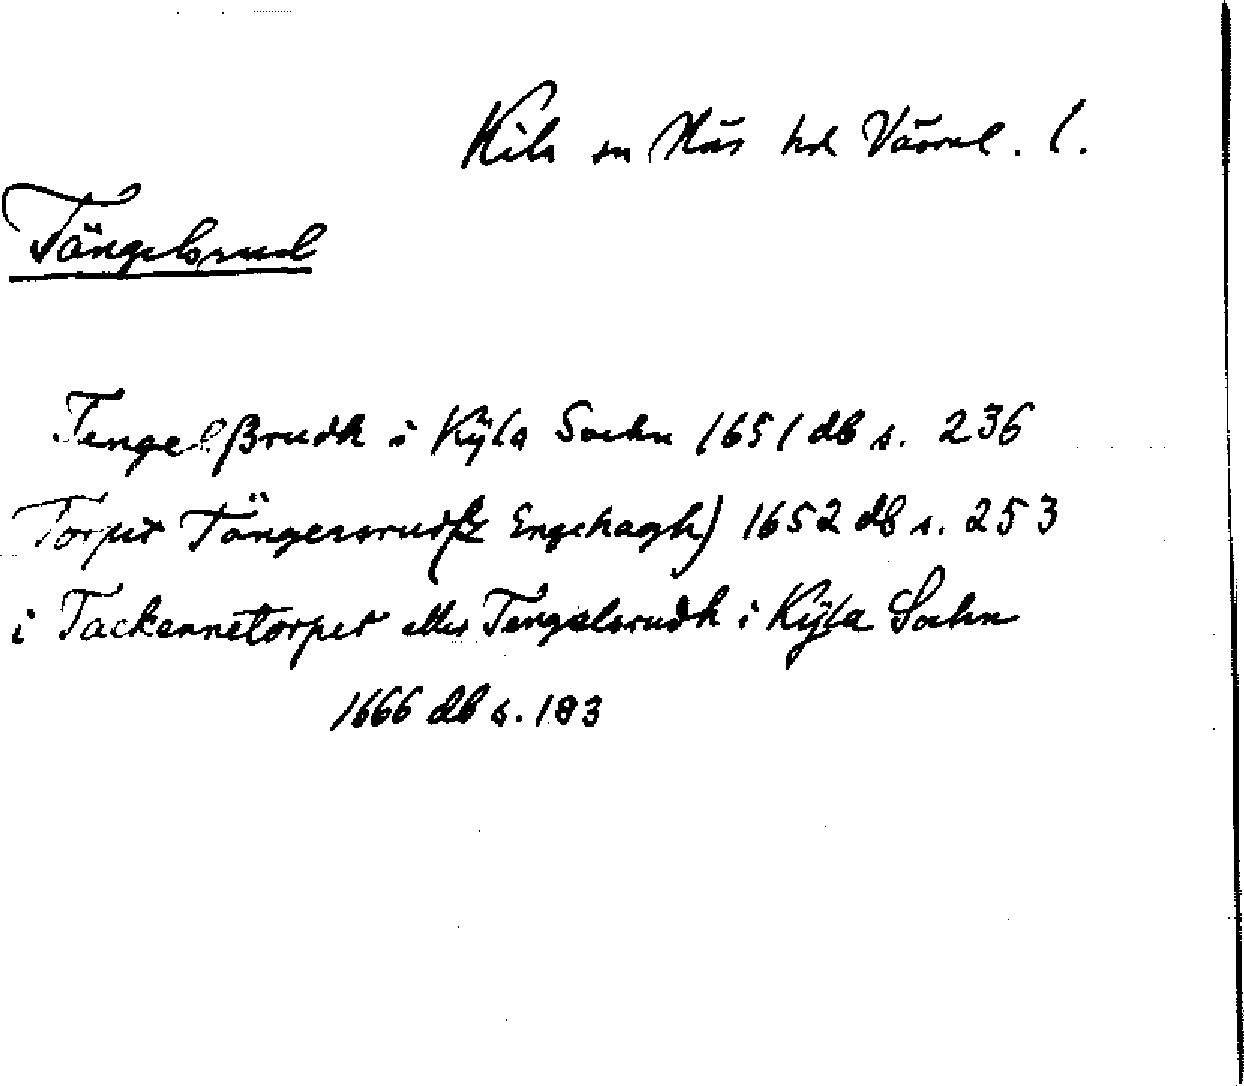 Kils sn Näs hd Värml. l.
Tängelsrud
Tengelßrudh i Kÿla Sochn 1651 db s. 236
Torpet Tängersrudz Engehagh) 1652 db s. 253
i Tackennetorpet eller Tengelsrudh i Kÿla Sochn
1666 db s. 183